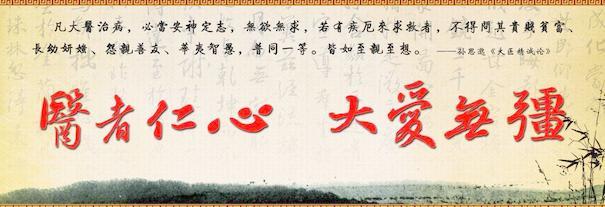 凡大醫治病，必當安神定志，無欲無求，若有疾厄來求救者，不得問其貴賤貧富、
長幼妍媸、怨親善友、華夷智愚，普同一等。皆如至親至想。 ——孙思邈《大医精诚论》
醫者仁心 大愛無疆